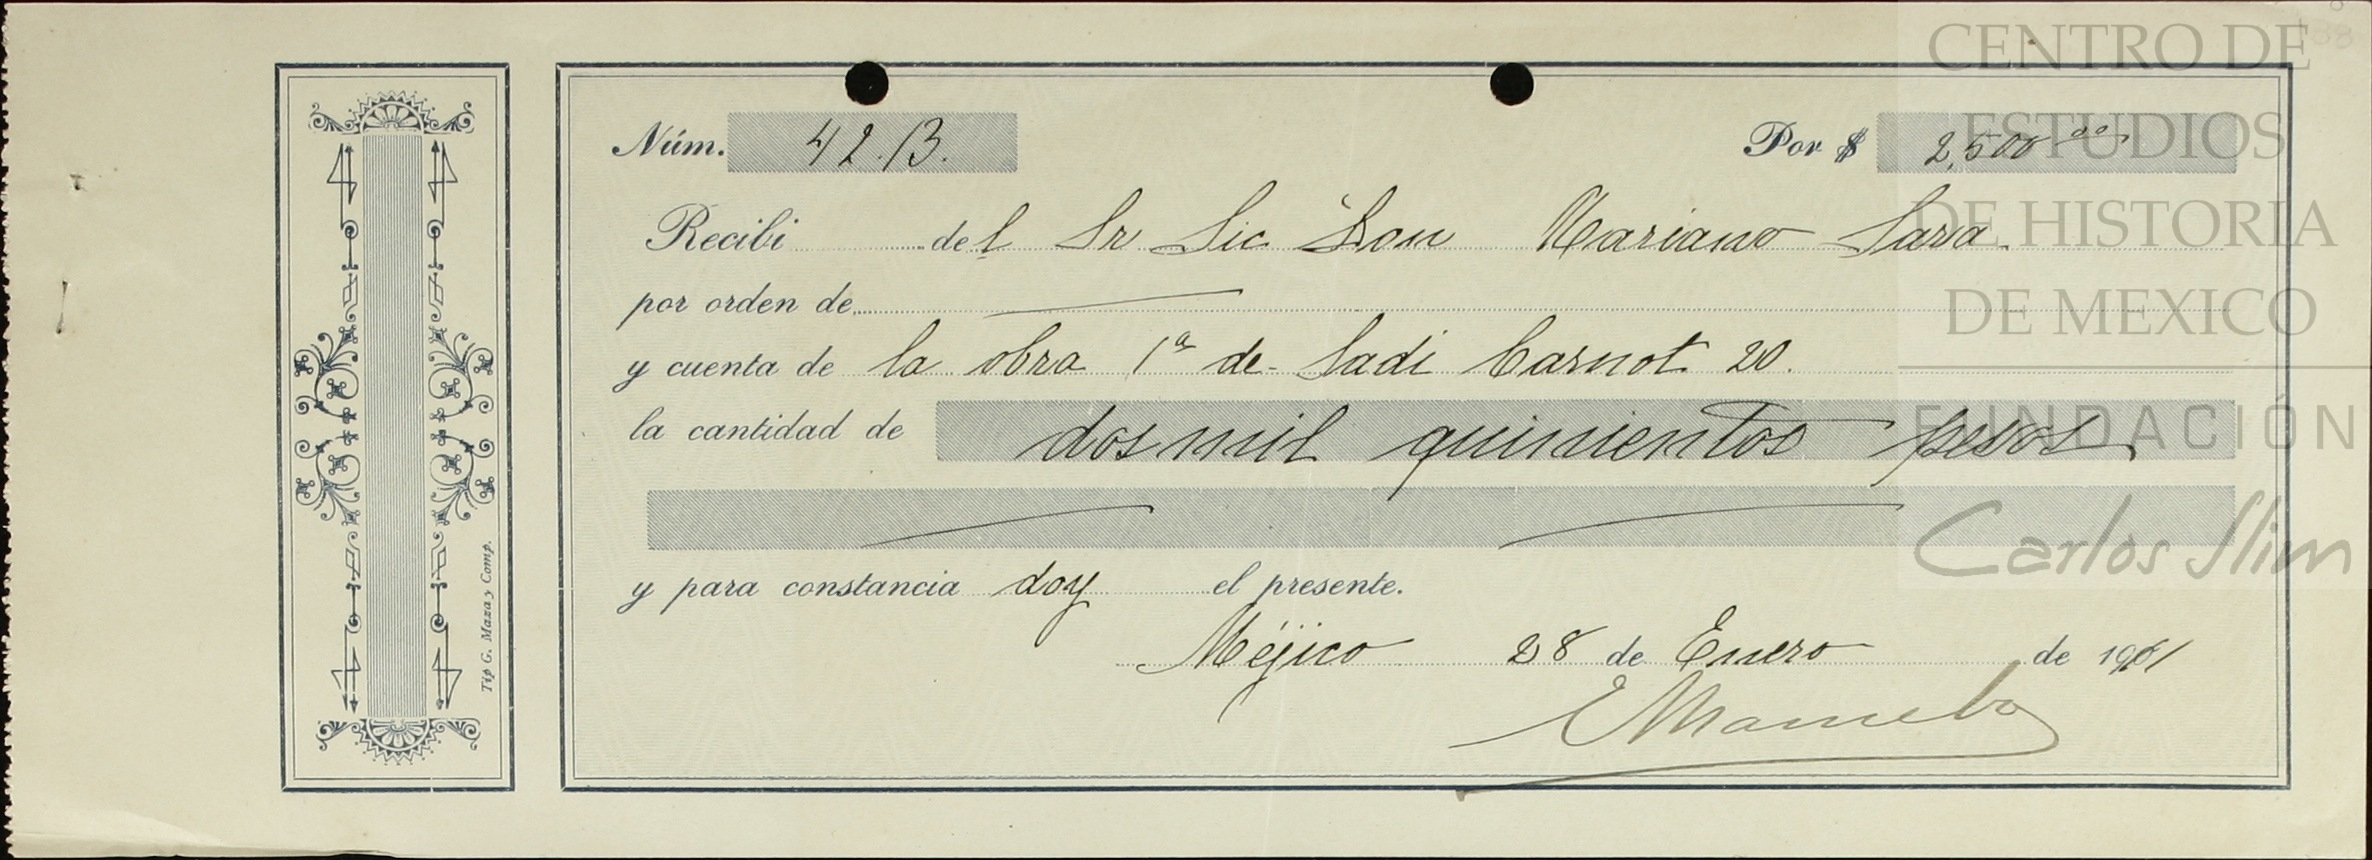 Núm. 42.B. Por $ 2,500 00
Recibí del Sr Lic Don Mariano Lara
por orden de
y cuenta de la obra 1ª de Sadi Carnot 20.
la cantidad de dos mil quinientos pesos
y para constancia doy el presente.
Méjico 28 de Enero de
Tip G. Maza y Comp.
CENTRO DE
ESTUDIOS
DE HISTORIA
DE MEXICO
FUNDACIÓN
Carlos Slim